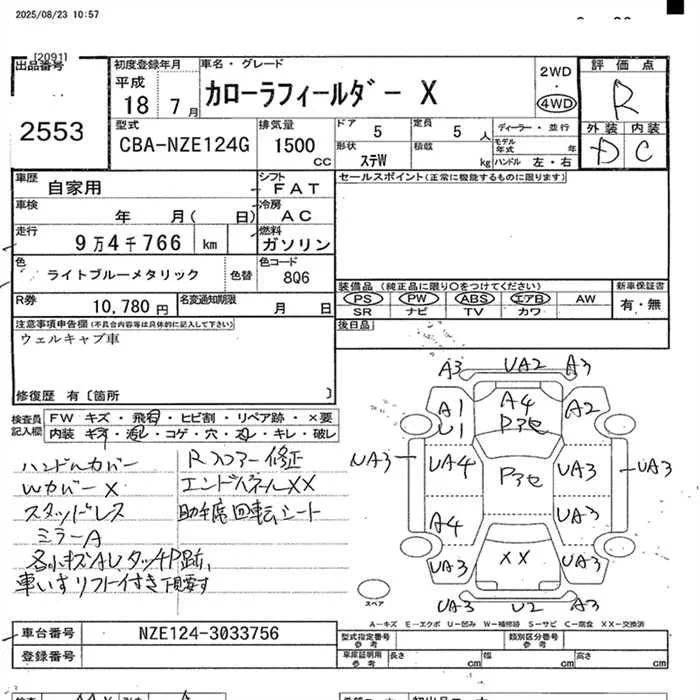 2025/08/23 10:57
[2091]
出品番号
2553
初度登録年月
平成
18 7月
車名・グレード
カローラフィールダー X
2WD
・
4WD
評価点
R
外装 内装
D C
型式
CBA-NZE124G
排気量
1500
cc
ドア
5
定員
5 人
形状
ステW
積載
kg
ディーラー・並行
モデル年式 年
ハンドル 左・右
車歴
自家用
シフト
FAT
車検
年 月( 日)
冷房
AC
走行
9万4千766 km
燃料
ガソリン
色
ライトブルーメタリック
色替
色コード
8Q6
R券
10,780 円
名変通知期限
月 日
セールスポイント(正常に機能するものに限ります)
装備品 (純正品に限り○をつけてください)
PS PW ABS エアB AW
SR ナビ TV カワ
新車保証書
有・無
後日品
注意事項申告欄(不具合内容等は具体的に記入して下さい)
ウェルキャブ車
修復歴 有〔箇所 〕
検査員記入欄
FW キズ・飛石・ヒビ割・リペア跡・×要
内装 キズ・汚れ・コゲ・穴・スレ・キレ・破レ
ハンドルカバー
Wカバー X
スタッドレス
ミラーA
各小キズAU タッチP跡、
車いすリフト付き 下見要す
Rフロアー修正
エンドパネルXX
助手席回転シート
A3 UA2 A3
A1 A4 A2
U1 Pアセ
UA3 UA4 Pアセ UA3 UA3
A4 UA3
UA3 XX UA3
UA3 U2 A3
スペア
A－キズ E－エクボ U－凹み W－補修跡 S－サビ C－腐食 XX－交換済
車台番号
NZE124-3033756
登録番号
型式指定番号
参考
類別区分番号
参考
車庫証明用
参考
長さ cm 幅 cm 高さ cm